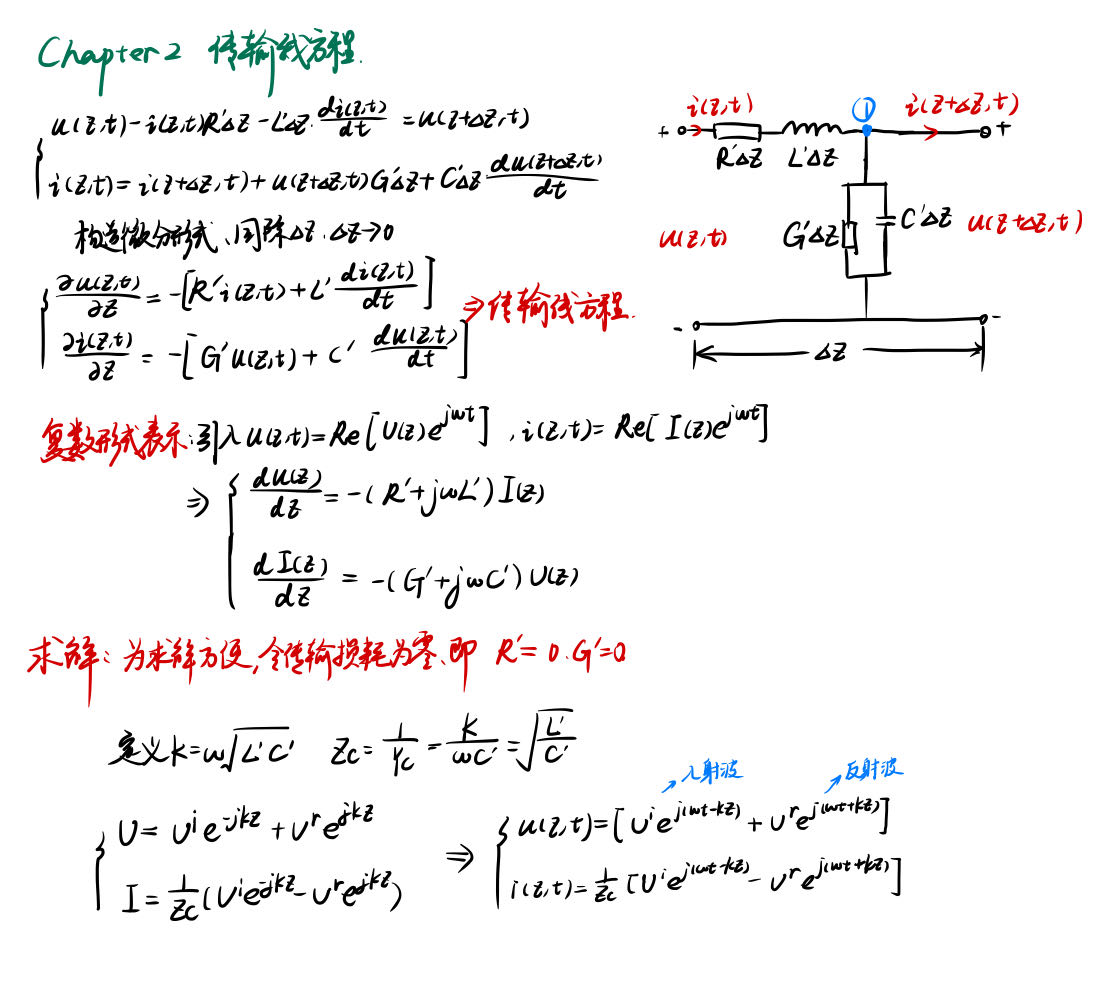 Chapter 2 传输线方程.
u(z,t)-i(z,t)R'Δz-L'Δz·di(z,t)/dt=u(z+Δz,t)
i(z,t)=i(z+Δz,t)+u(z+Δz,t)G'Δz+C'Δz du(z+Δz,t)/dt
构造微分形式、同除Δz.Δz→0
∂u(z,t)/∂z=-[R'i(z,t)+L' di(z,t)/dt]
∂i(z,t)/∂z=-[G'u(z,t)+C' du(z,t)/dt]
⇒传输线方程.
i(z,t)
①
i(z+Δz,t)
+
+
R'Δz
L'Δz
u(z,t)
G'Δz
C'Δz
u(z+Δz,t)
-
-
Δz
复数形式表示:引入u(z,t)=Re[U(z)e^jωt],i(z,t)=Re[I(z)e^jωt]
⇒ du(z)/dz=-(R'+jωL')I(z)
dI(z)/dz=-(G'+jωC')U(z)
求解:为求解方便,令传输损耗为零、即 R'=0.G'=0
定义k=ω√L'C' Zc=1/Yc=k/ωC'=√L'/C'
U=U^i e^-jkz+U^r e^jkz
I=1/Zc(U^i e^-jkz-U^r e^jkz)
入射波
反射波
⇒ u(z,t)=[U^i e^j(ωt-kz)+U^r e^j(ωt+kz)]
i(z,t)=1/Zc[U^i e^j(ωt-kz)-U^r e^j(ωt+kz)]